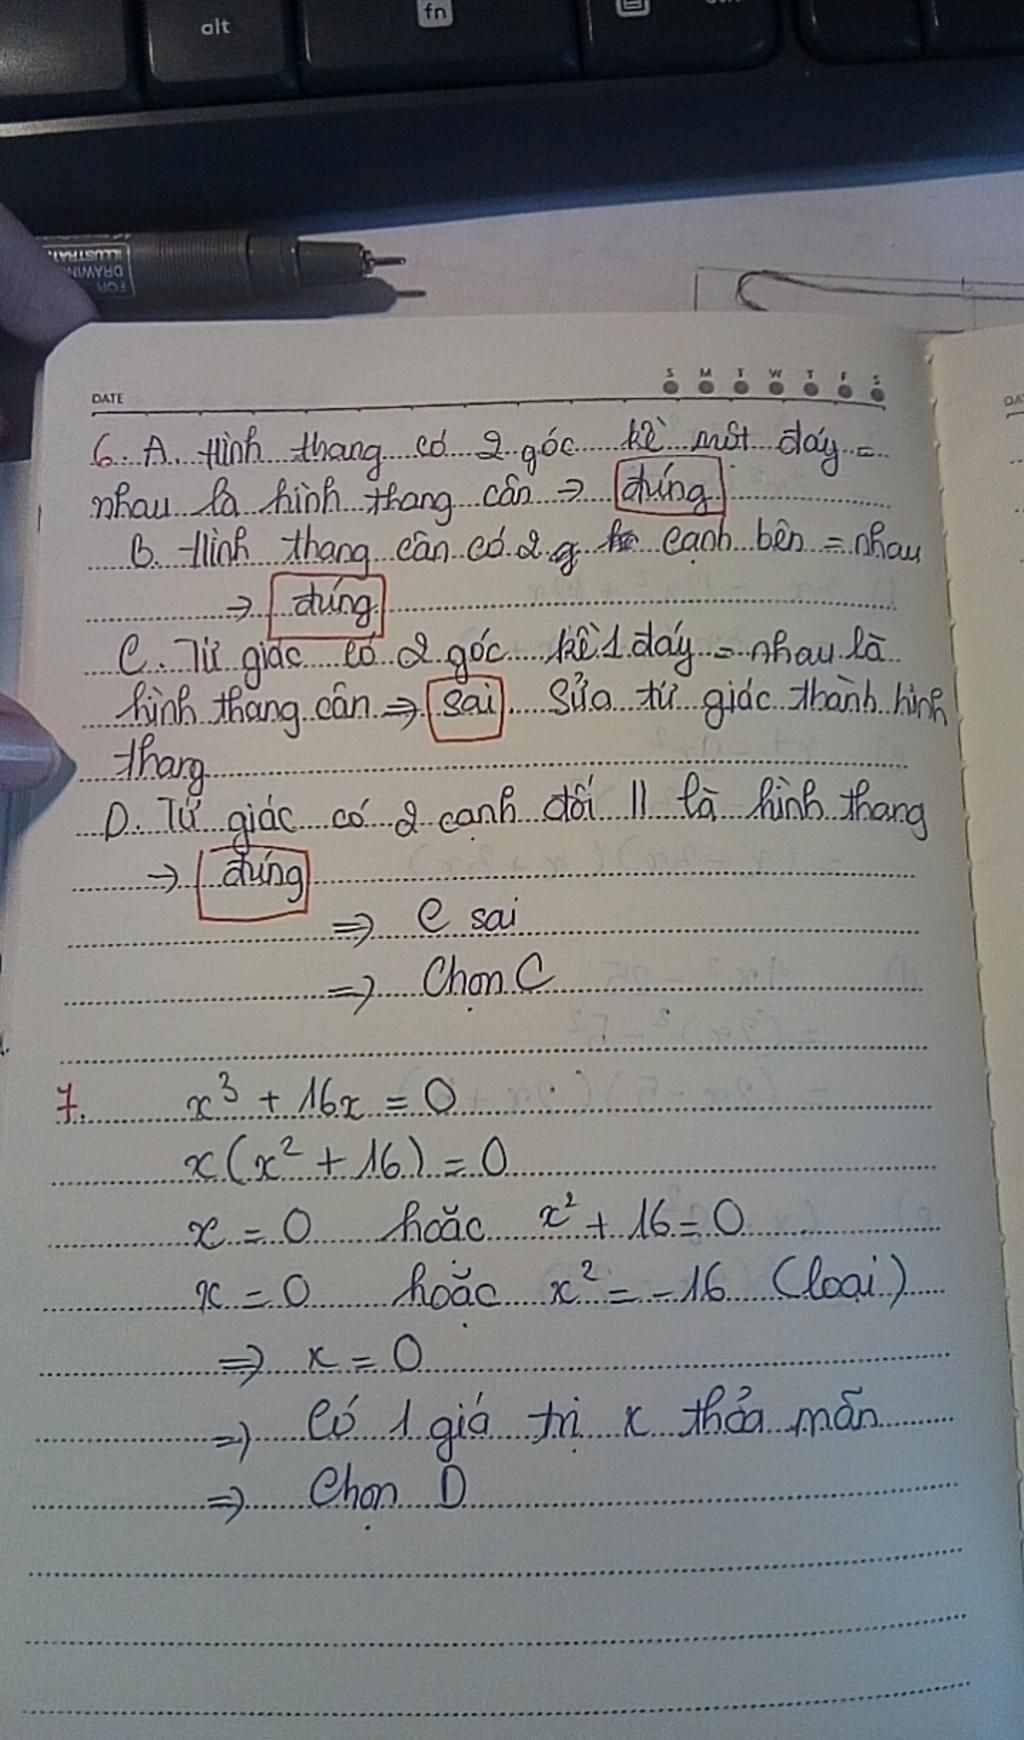 alt
fn
ILLUSTRAT
DRAWING
FOR
S M T W T F S
DATE
6. A. Hình thang có 2 góc kề một đáy =
nhau là hình thang cân → đúng
B. Hình thang cân có 2 cạnh bên = nhau
→ đúng
C. Tứ giác có 2 góc kề 1 đáy = nhau là
hình thang cân => sai. Sửa tứ giác thành hình
thang
D. Tứ giác có 2 cạnh đối || là hình thang
→ đúng
=> C sai
=> Chọn C
7. x³ + 16x = 0
x(x² + 16) = 0
x = 0 hoặc x² + 16 = 0
x = 0 hoặc x² = -16 (loại)
=> x = 0
=> Có 1 giá trị x thỏa mãn
=> Chọn D